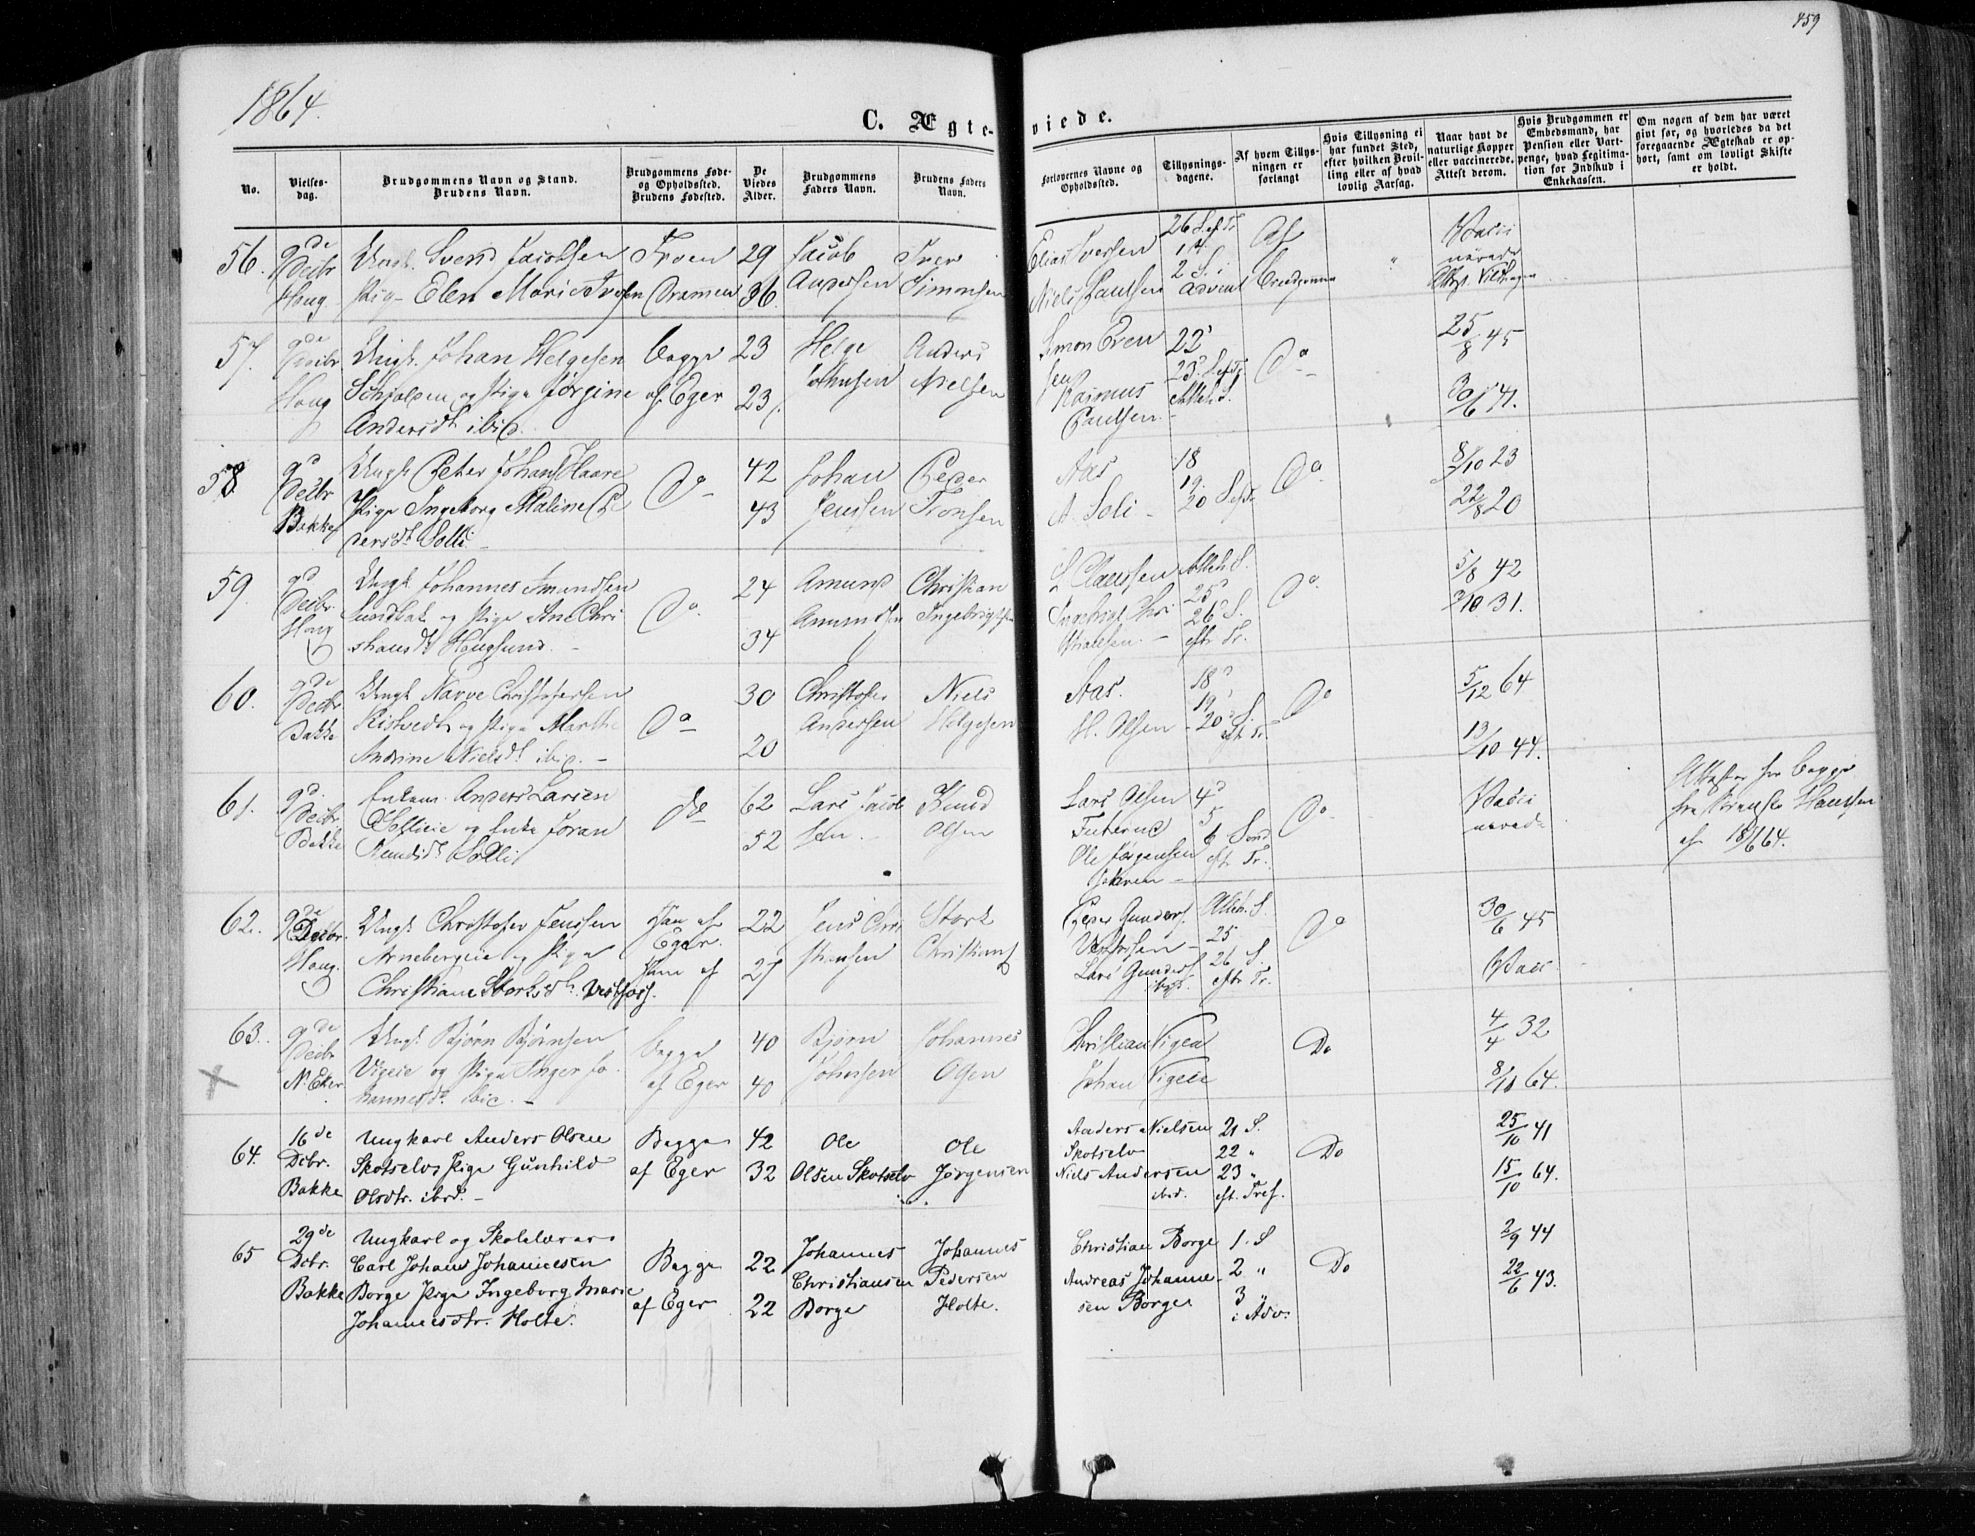 459
1864.
C. Ægte-
viede.
No.
Vielses-
dag.
Brudgommens Navn og Stand.
Brudens Navn.
Brudgommens Føde-
og Opholdssted.
Brudens Fødested.
De
Viedes
Alder.
Brudgommens
Faders Navn.
Brudens Faders
Navn.
Forlovernes Navne og
Opholdssted.
Tillysnings-
dagene.
Af hvem Tillys-
ningen er
forlangt
Hvis Tillysning ei
har fundet Sted,
efter hvilken Bevil-
ling eller af hvad
lovlig Aarsag.
Naar havt de
naturlige Kopper
eller vaccinerede.
Attest derom.
Hvis Brudgommen er
Embedsmand, har
Pension eller Vart-
penge, hvad Legitima-
tion for Indskud i
Enkekassen.
Om nogen af dem har været
givt før, og hvorledes da det
foregaaende Ægteskab er op-
hørt, samt om lovligt Skifte
er holdt.
56.
9de
Decbr
Houg
Ungk. Svend Jacobsen
Pig- Elen Marie Iversen
Dramen
29
36.
Jacob
Andersen
Iver
Simonsen
Elias Iversen
Niels Paulsen
26 S. ef Tr
2 S. i
Advent
Af
Brudgommen
Vacci
nerede
57.
9de
Decbr
Houg
Ungk. Johan Helgesen
og Pige Jørgine
Andersdt. ibid.
Begge
af Eger
23
23
Helge
Johnsen
Anders
Simon Even
sen
Rasmus
Paulsen.
22
23 S. ef Tr
Do
25/8 45
30/6 41.
58.
9d
Decbr
Bakke
Ungk. Peter Johans Haare
Pige Ingeborg Maline Pe
dersdt. Solli
Do
42
43
Johan
Jensen
Peder
Aas
A. Soli
18
19.
20
Do
8/10 23
22/8 20
59.
9d
Decbr.
Houg
Ungk. Johannes Amundsen
Sundbak og Pige Ane Chri
stiansdt. Hougsund.
Do
24
34
Amund
Amundsen
Christian
Ingebrigtsen
25
26 S.
eftr. Tr.
Do
5/8 42
31.
60.
9de
Decbr
Bakke
Ungk. Narve Christofersen
og Pige Marthe
Andrine Nielsdt. ibid.
Do
30
20
Christofer
Andersen
Niels
Helgesen
Aas.
H. Olsen
18
19
20 S.
eft. Tr.
Do
5/12 64
13/10 44.
61.
9d.
Decbr.
Bakke
Enkem. Anders Larsen
og Enke Joran
Knudsdt. Solli
do
62
52
Lars Jacob
sen.
Knud
Olsen
Lars Olsen
Ole Jørgensen
4
5
6 Sønd
eft. Tr.
Do
Vacci
nerede
Attester for begge
fra Hansen
af 18/6 64.
62.
9de
Decbr.
Houg.
Ungk. Christofer Jensen
Arnebergeie og Pige
Christiane Storksdt. Vestfoss.
Han af
Eger.
Hun af
22
27
Jens Chri
stiansen
Stork
Peder Gunders.
Lars Gunders
ibid.
25
26 S.
eftr. Tr.
Do
30/6 45
Vacc.
63.
9de
Decbr
N. Eker
Ungk. Bjørn Bjørnsen
Vigeie og Pige Inger Jo-
hannesdt. ibid.
Begge
af Eger
40
40
Bjørn
Johnsen
Johannes
Olsen
Christian Vigen
Johan Vigeie
Do
4/4 32
8/10 64.
64.
16de
Dcbr.
Bakke
Ungkarl Anders Olsen
Skotselv, Pige Gunhild
Olsdtr. ibid.
Begge
af Eger
42
32
Ole
Olsen Skotselv
Ole
Jørgensen
Anders Nielsen
Skotselv
Niels Andersen
ibid.
21 S.
22 "
23 "
eft. Tref.
Do
25/10 41
15/10 64.
65
29de
Dcbr.
Bakke
Ungkarl og Skolelærer
Carl Johan Johannesen
Borge Pige Ingeborg Marie
Johannesdtr. Holte.
Begge
af Eger
22
22
Johannes
Christiansen
Borge
Johannes
Pedersen
Holte.
Christian Borge
Andreas Johanne-
sen Borge
1. S
2 "
3 "
i Adv.
Do
2/9 44
22/6 43.